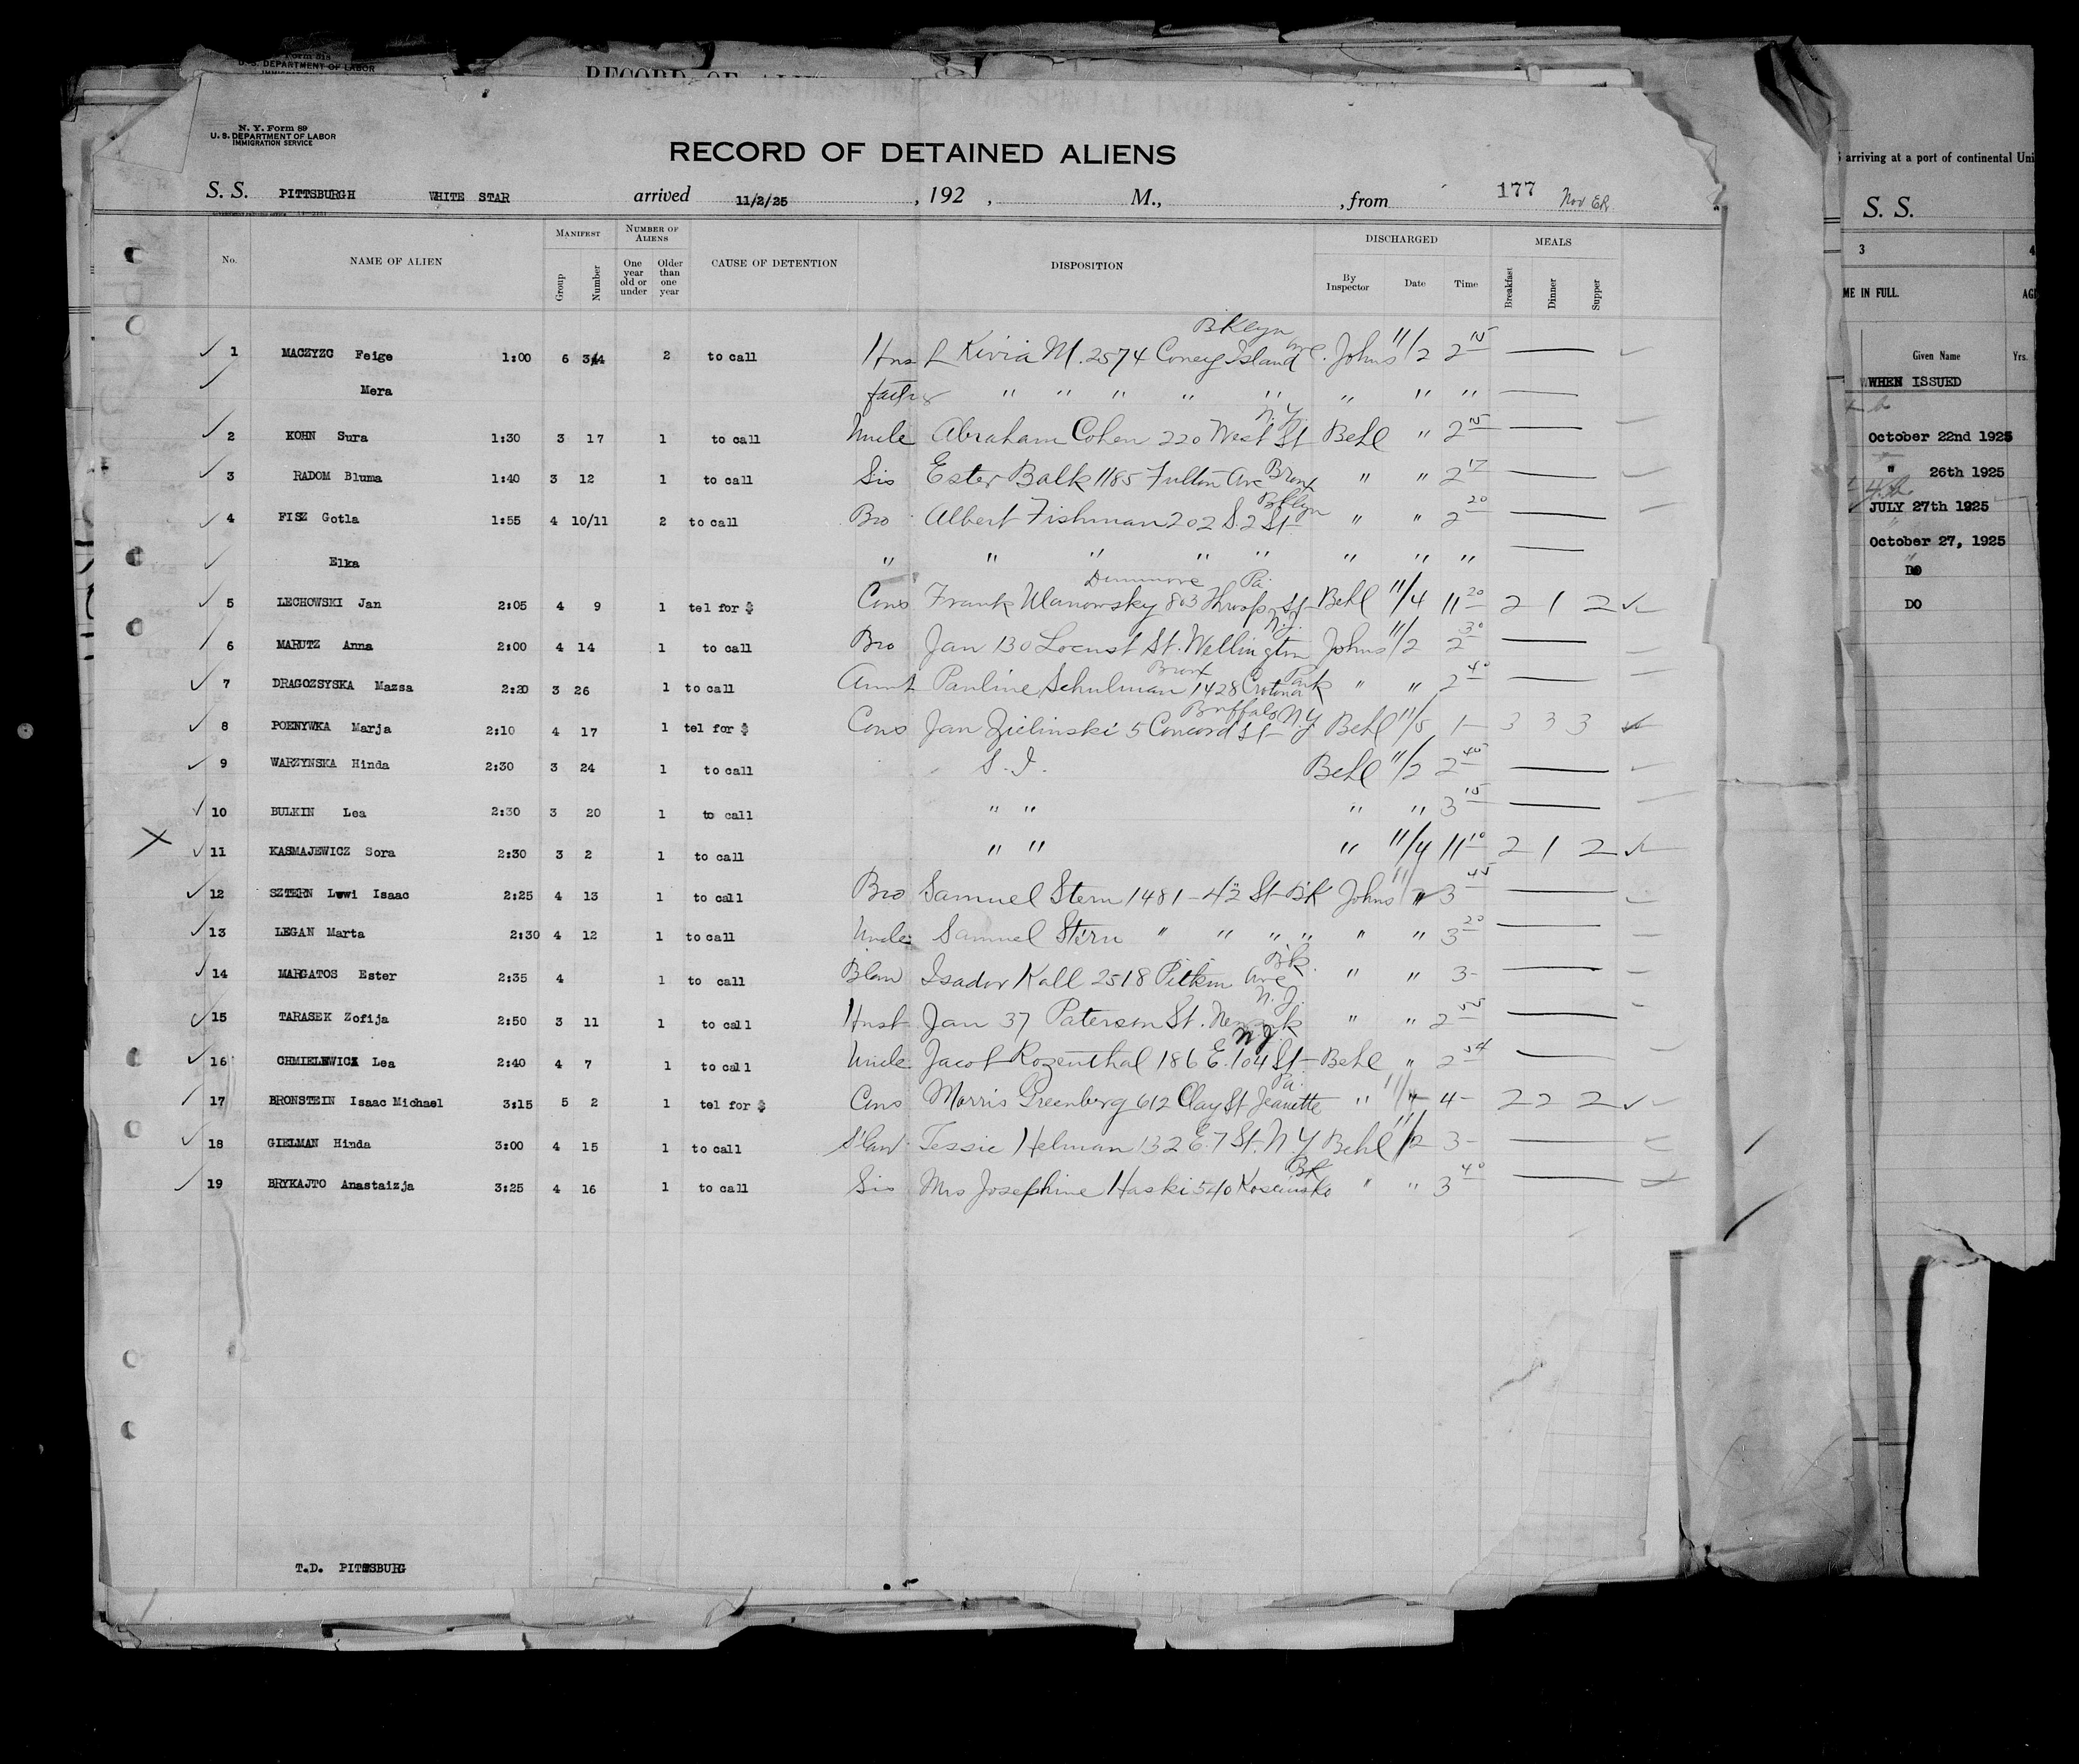 Form
U. S. DEPARTMENT OF LABOR
RECORD OF
N. Y. Form 89
U. S. DEPARTMENT OF LABOR
IMMIGRATION SERVICE
RECORD OF DETAINED ALIENS
S. S. PITTSBURGH WHITE STAR arrived 11/2/25 , 192 , M., , from 177 Nov ER
No. NAME OF ALIEN MANIFEST Group Number NUMBER OF ALIENS One year old or under Older than one year CAUSE OF DETENTION DISPOSITION DISCHARGED By Inspector Date Time MEALS Breakfast Dinner Supper
Bklyn
1 MACZYZC Feige 1:00 6 3/4 2 to call Hus Kivia M. 2574 Coney Island Ave. Johns 11/2 2 15
Mera father " " " " " " " "
N.Y.
2 KOHN Sura 1:30 3 17 1 to call Uncle Abraham Cohen 220 West St Behl " 2 15
3 RADOM Bluma 1:40 3 12 1 to call Sis Ester Balk 1185 Fulton Ave Bronx " " 2 17
Bklyn
4 FISZ Gotla 1:55 4 10/11 2 to call Bro Albert Fishman 202 S. 2 St " " 2 20
Elka " " " " " " " "
Dunmore Pa.
5 LECHOWSKI Jan 2:05 4 9 1 tel for $ Cous Frank Ulanowsky 803 Throop St Behl 11/4 11 20 2 1 2
N.J.
6 MARUTZ Anna 2:00 4 14 1 to call Bro Jan 130 Locust St. Wallington Johns 11/2 2 30
Bronx Park
7 DRAGOZSYSKA Mazsa 2:20 3 26 1 to call Aunt Pauline Schulman 1428 Crotona " " 2 40
Buffalo N.Y
8 POENYWKA Marja 2:10 4 17 1 tel for $ Cous Jan Zielinski 5 Concord St Behl 11/5 1 - 3 3 3
9 WARZYNSKA Hinda 2:30 3 24 1 to call S. I. Behl 11/2 2 40
10 BULKIN Lea 2:30 3 20 1 to call " " " " 3 15
11 KASMAJEWICZ Sora 2:30 3 2 1 to call " " " 11/4 11 10 2 1 2
12 SZTERN Lewi Isaac 2:25 4 13 1 to call Bro Samuel Stern 1481 - 42 St Bk Johns 11/2 3 45
13 LEGAN Marta 2:30 4 12 1 to call Uncle Samuel Stern " " " " " " 3 20
Bk.
14 MARGATOS Ester 2:35 4 1 to call Blaw Isador Kall 2518 Pitkin Ave " " 3 -
N.J.
15 TARASEK Zofija 2:50 3 11 1 to call Husb Jan 37 Paterson St. Newark " " 2 55
N.Y.
16 CHMIELEWICZ Lea 2:40 4 7 1 to call Uncle Jacob Rozenthal 186 E. 104 St Behl " 2 54
Pa.
17 BRONSTEIN Isaac Michael 3:15 5 2 1 tel for $ Cous Morris Greenberg 612 Clay St Jeanette " 11/4 4 - 2 2 2
18 GIELMAN Hinda 3:00 4 15 1 to call S'law Tessie Helman 132 E. 7 St. N.Y Behl 11/2 3 -
Bk
19 BRYKAJTO Anastaizja 3:25 4 16 1 to call Sis Mrs Josephine Haski 540 Kosciusko " " 3 40
T.D. PITTSBURG
arriving at a port of continental Uni
S. S.
3 4
ME IN FULL. AG
Given Name Yrs.
WHEN ISSUED
October 22nd 1925
" 26th 1925
JULY 27th 1925
October 27, 1925
DO
DO